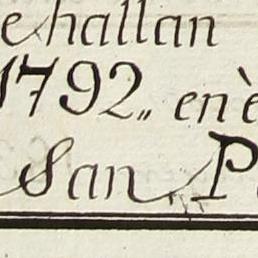 e hallan
1792,, en è
San P